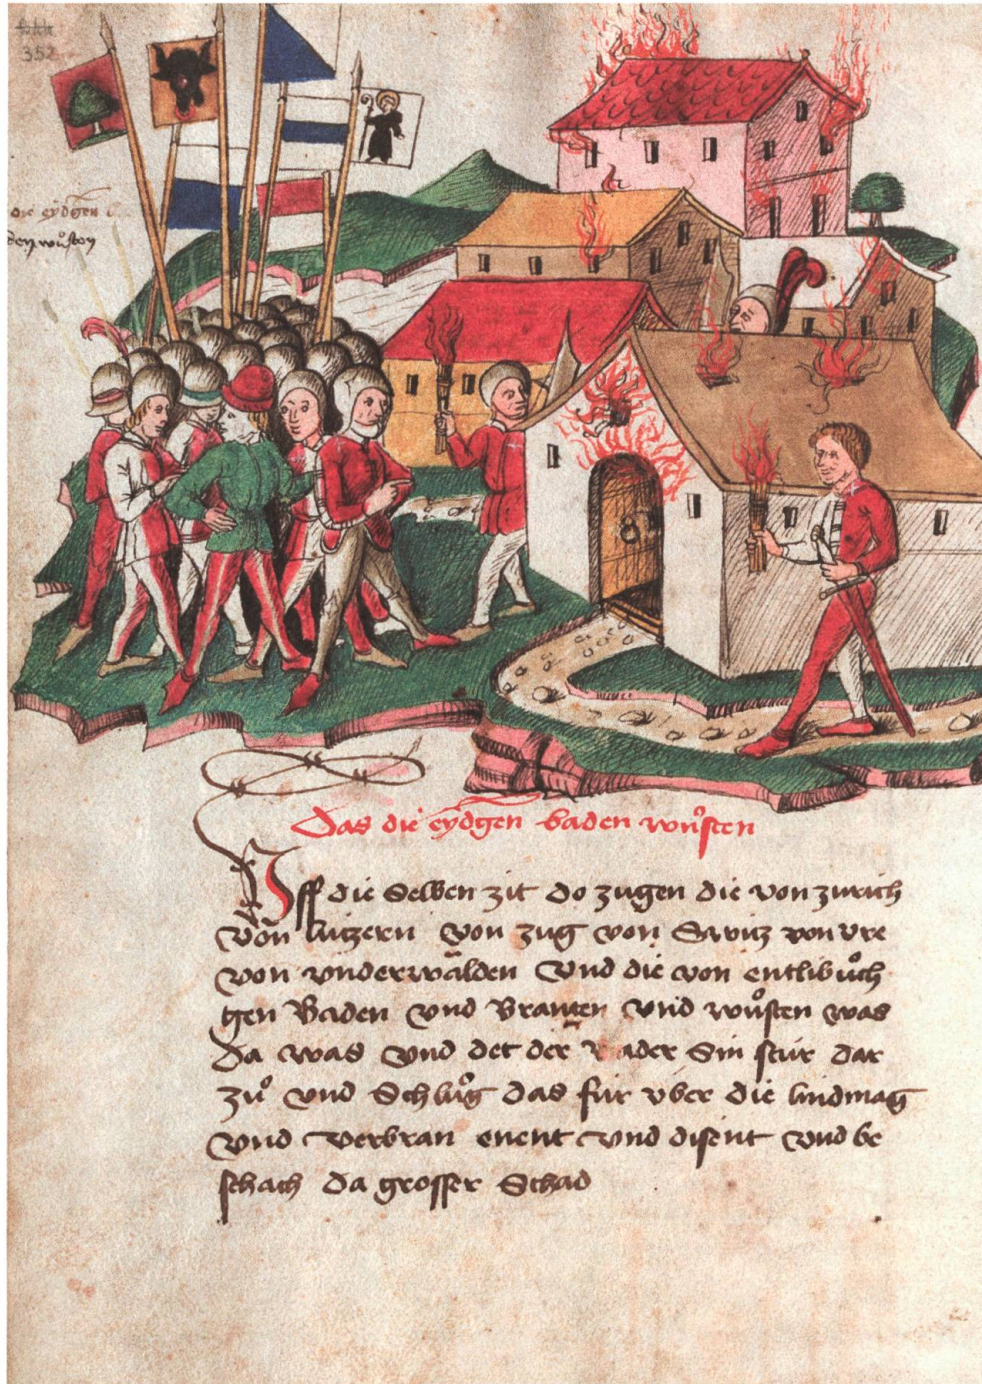 352
die eydgen
den wuͦsten
Das die eydgen baden wuͦsten
Uff die Selben zit do zugen die von zurich
von lutzern von zug von Switz von vre
von vnderwalden Vnd die von entlibuͦch
gen Baden vnd Branten vnd wuͦsten was
da was vnd det der Sin stür dar
zuͦ vnd Schluͦg das für vber die lindmag
vnd verbran enent vnd disent vnd be
schach da grosser Schad